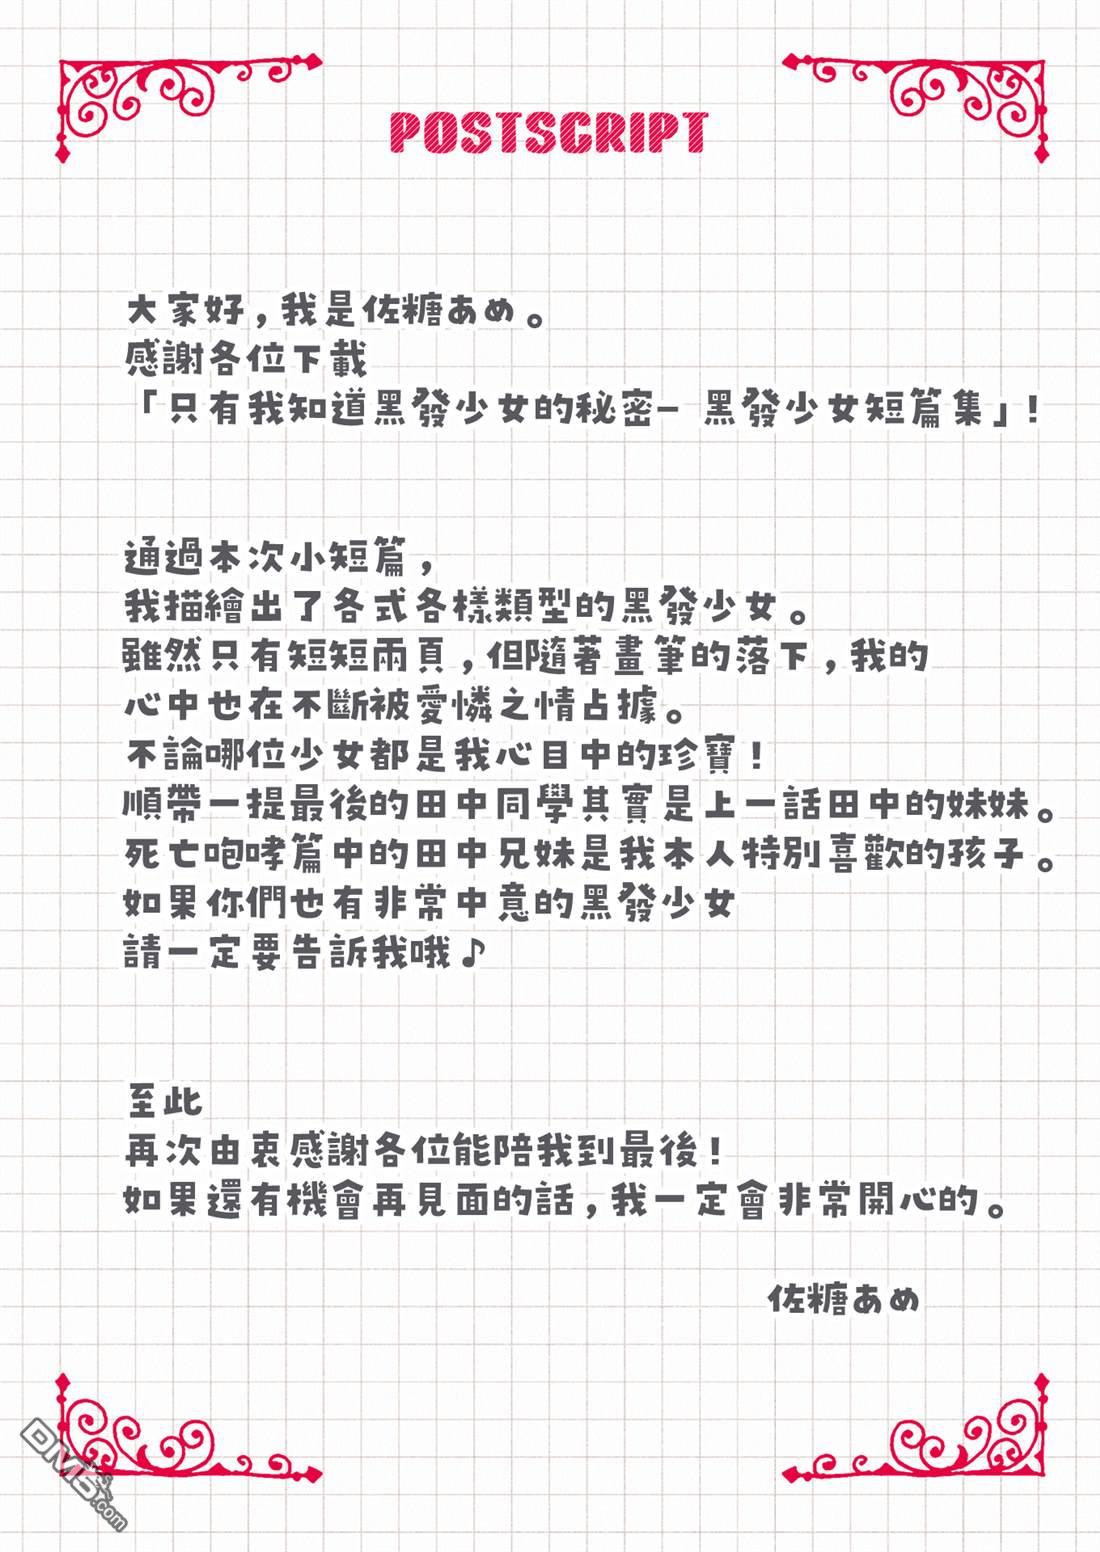 POSTSCRIPT
大家好，我是佐糖あめ。
感謝各位下載
「只有我知道黑發少女的秘密- 黑發少女短篇集」！
通過本次小短篇，
我描繪出了各式各樣類型的黑發少女。
雖然只有短短兩頁，但隨著畫筆的落下，我的
心中也在不斷被愛憐之情占據。
不論哪位少女都是我心目中的珍寶！
順帶一提最後的田中同學其實是上一話田中的妹妹。
死亡咆哮篇中的田中兄妹是我本人特別喜歡的孩子。
如果你們也有非常中意的黑發少女
請一定要告訴我哦♪
至此
再次由衷感謝各位能陪我到最後！
如果還有機會再見面的話，我一定會非常開心的。
佐糖あめ
DM5.com